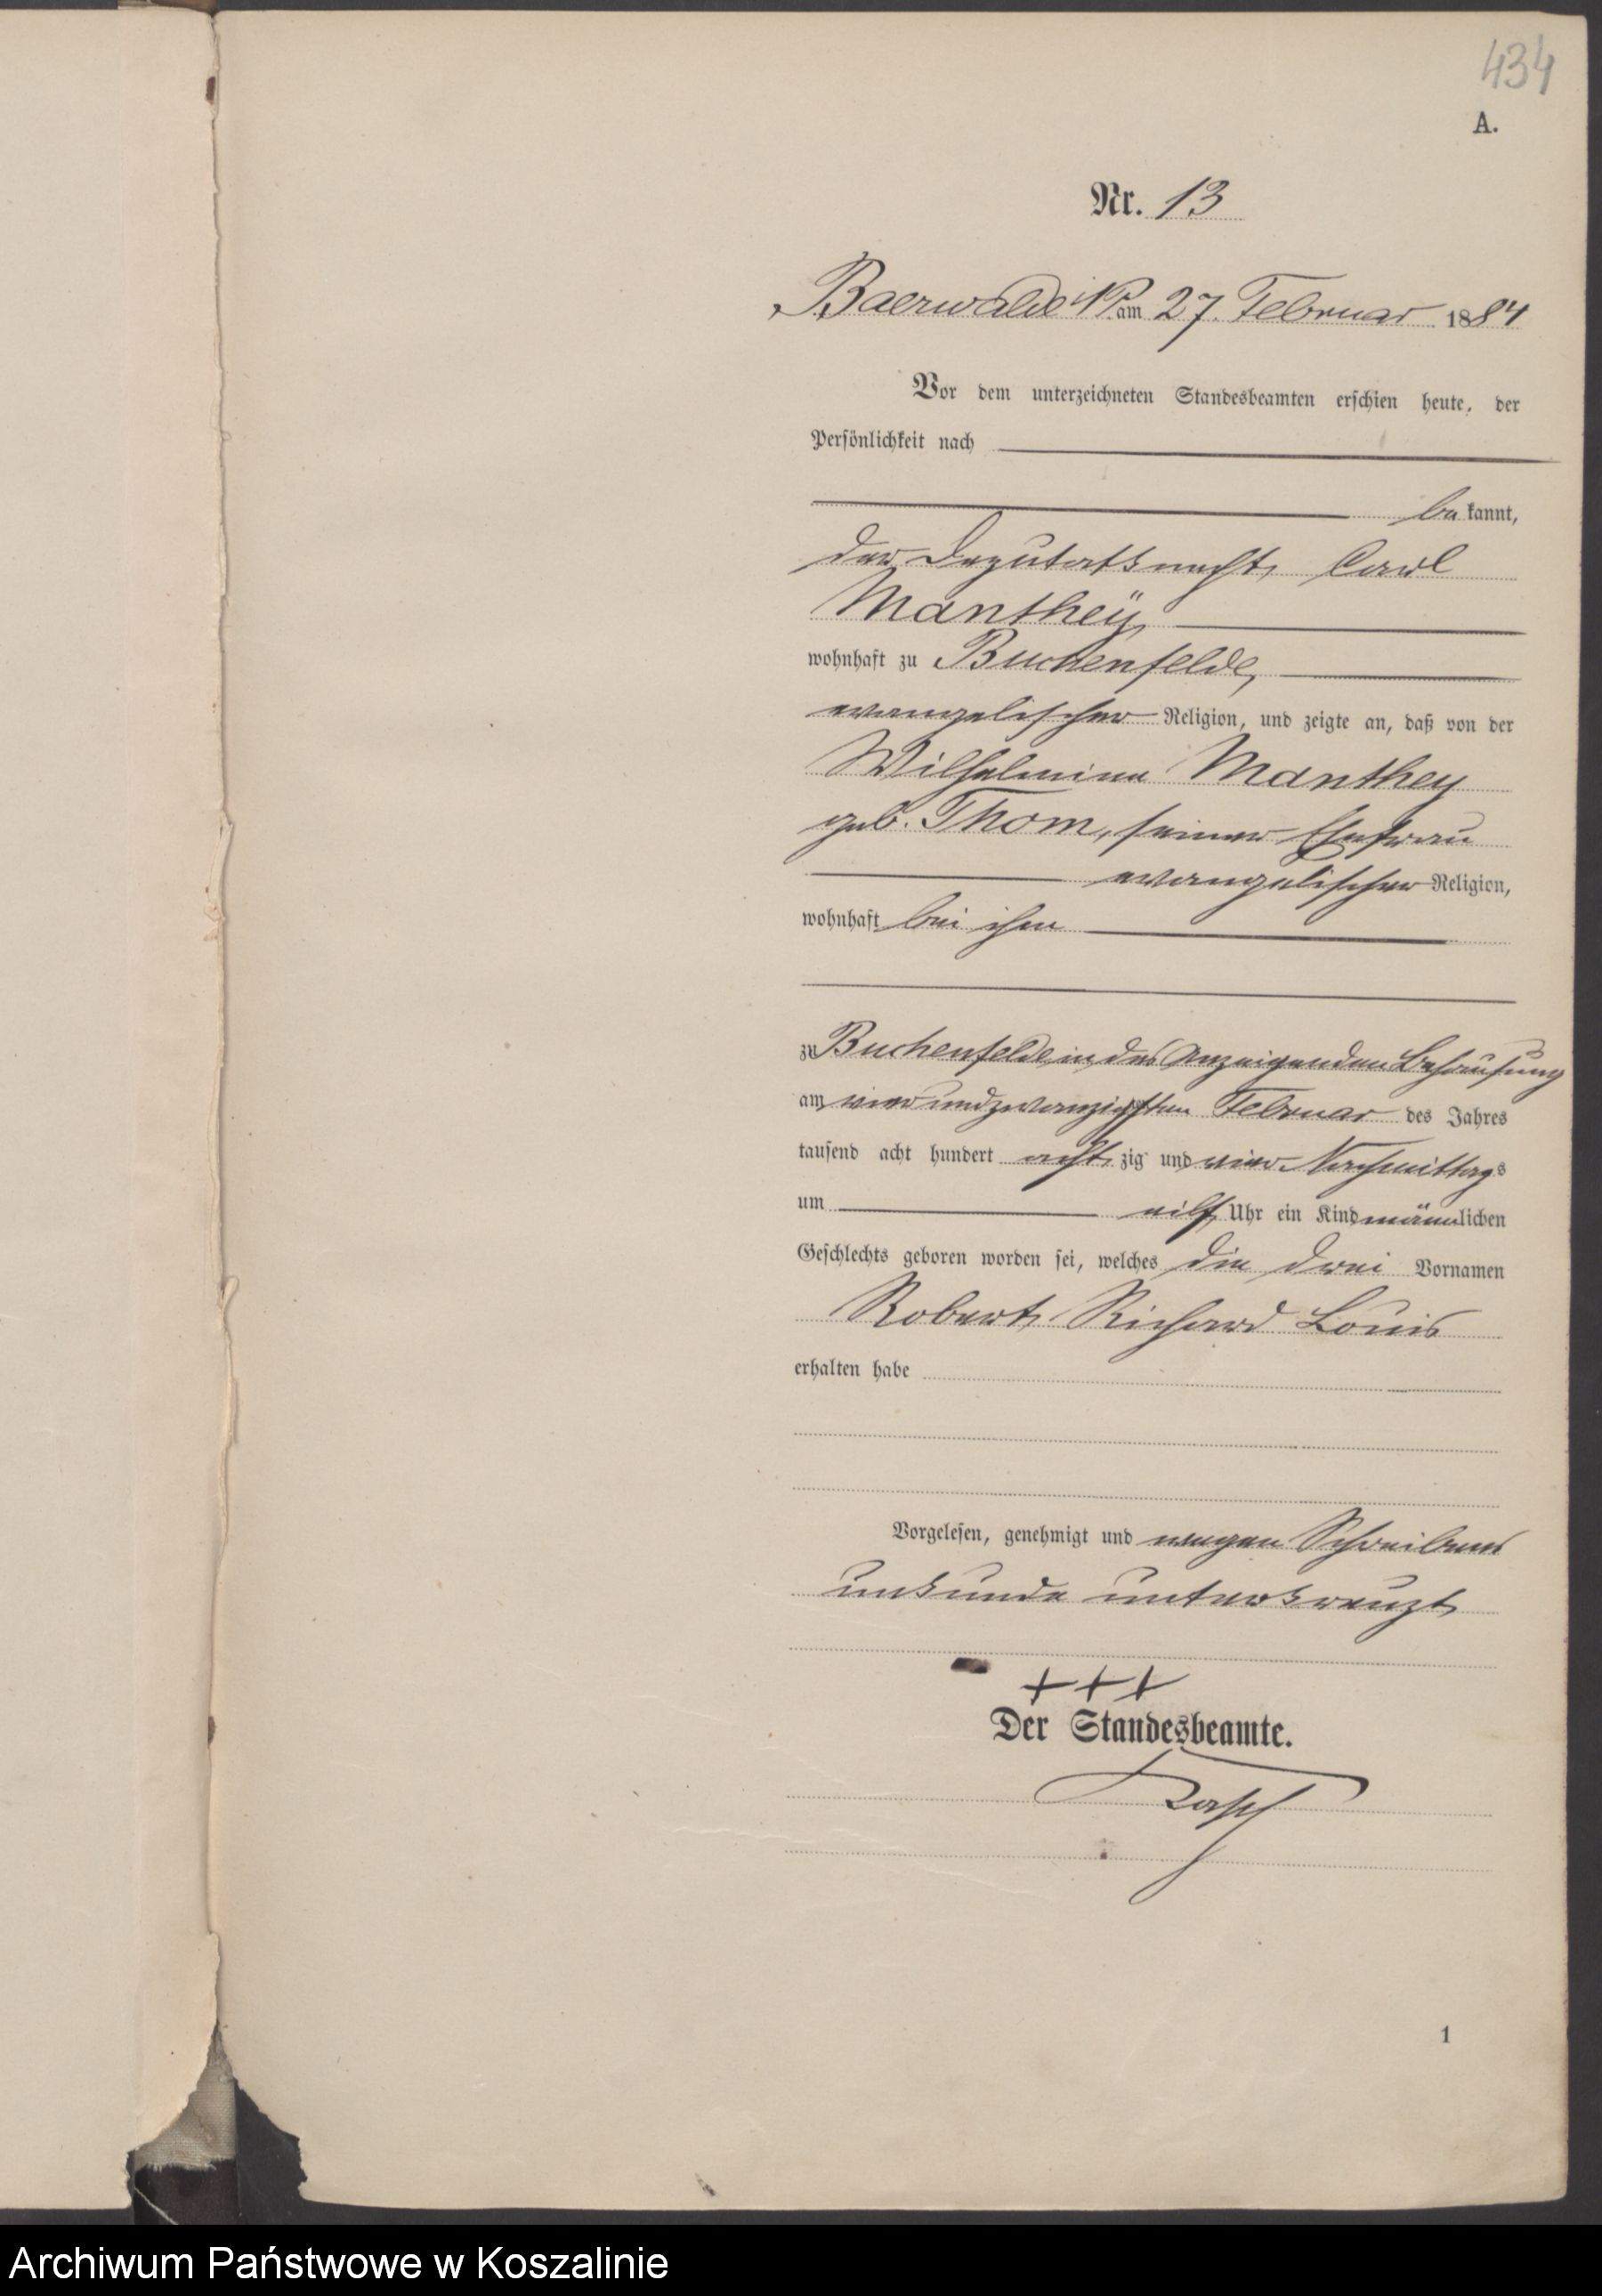 434
A.
Nr. 13
Baerwalde i/P. am 27. Februar 1884
Vor dem unterzeichneten Standesbeamten erschien heute, der
Persönlichkeit nach
be kannt,
der Deputatknecht Carl
Manthey,
wohnhaft zu Buchenfelde,
evangelischer Religion, und zeigte an, daß von der
Wilhelmine Manthey
geb. Thom, seiner Ehefrau
evangelischer Religion,
wohnhaft bei ihm
zu Buchenfelde in des Anzeigenden Behausung
am vier und zwanzigsten Februar des Jahres
tausend acht hundert acht zig und vier Nachmittags
um eilf Uhr ein Kind männlichen
Geschlechts geboren worden sei, welches die drei Vornamen
Robert Richard Louis
erhalten habe
Vorgelesen, genehmigt und wegen Schreibens
unkunde unterkreuzt
+++
Der Standesbeamte.
1
Archiwum Państwowe w Koszalinie